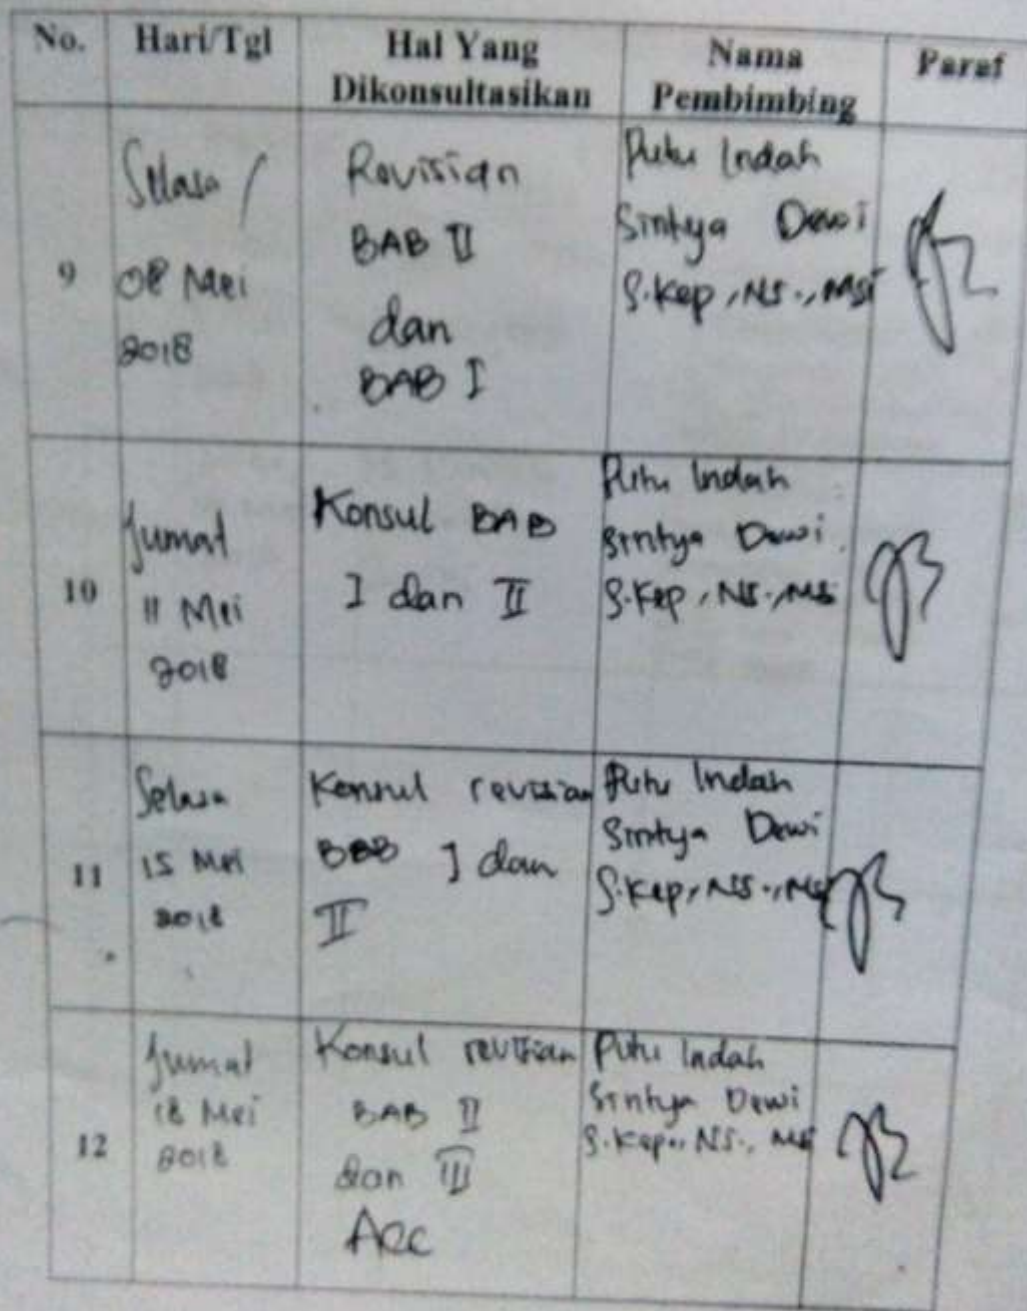 No. Hari/Tgl Hal Yang Dikonsultasikan Nama Pembimbing Paraf
9
Selasa /
08 Mei
2018
Revisian
BAB II
dan
BAB I
Putu Indah
Sintya Dewi
S.Kep, NS., Msi
10
Jumat
11 Mei
2018
Konsul BAB
I dan II
Putu Indah
Sintya Dewi
S.Kep, NS., Msi
11
Selasa
15 Mei
2018
Konsul revisian
BAB I dan
II
Putu Indah
Sintya Dewi
S.Kep, NS.,
12
Jumat
18 Mei
2018
Konsul revisian
BAB II
dan III
Acc
Putu Indah
Sintya Dewi
S.Kep., NS., Msi